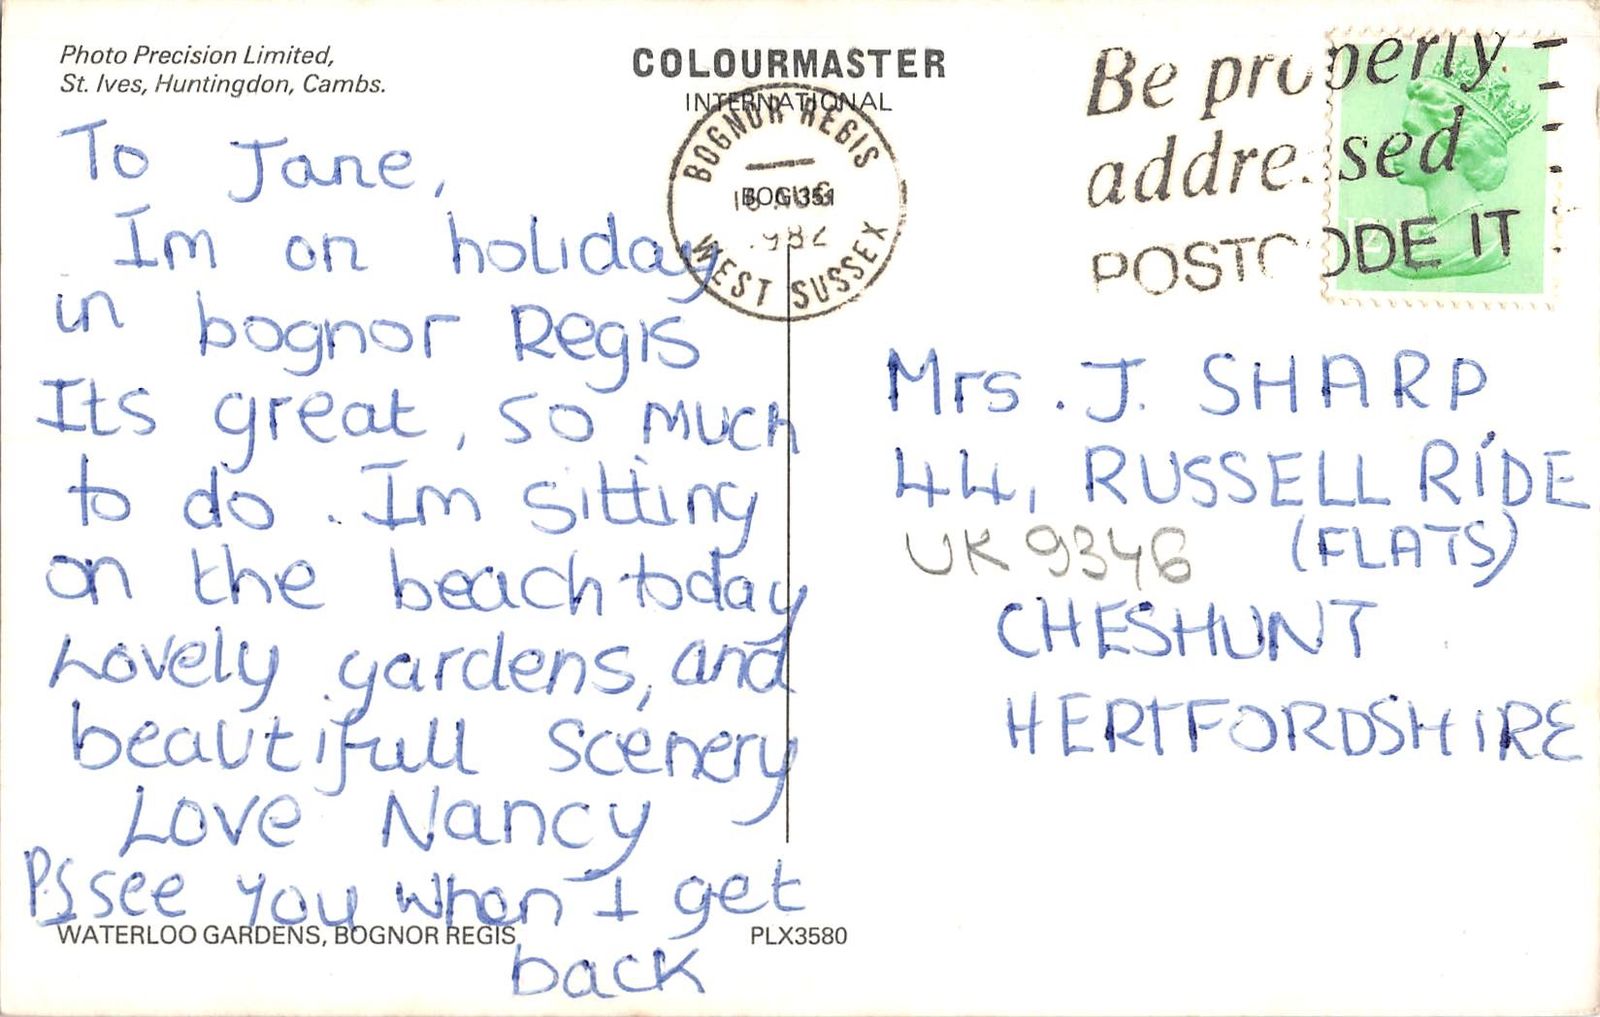 Photo Precision Limited,
St. Ives, Huntingdon, Cambs.
COLOURMASTER
INTERNATIONAL
BOGNOR REGIS
AUG
BOG 351
1982
WEST SUSSEX
Be properly
addressed
POSTCODE IT
To Jane,
Im on holiday
in bognor Regis
Its great, so much
to do. Im sitting
on the beach today
Lovely gardens, and
beautifull scenery
Love Nancy
PS see you when I get
back
Mrs. J. SHARP
44, RUSSELL RiDE
(FLATS)
UK 9346
CHESHUNT
HERTFORDSHIRE
WATERLOO GARDENS, BOGNOR REGIS
PLX3580